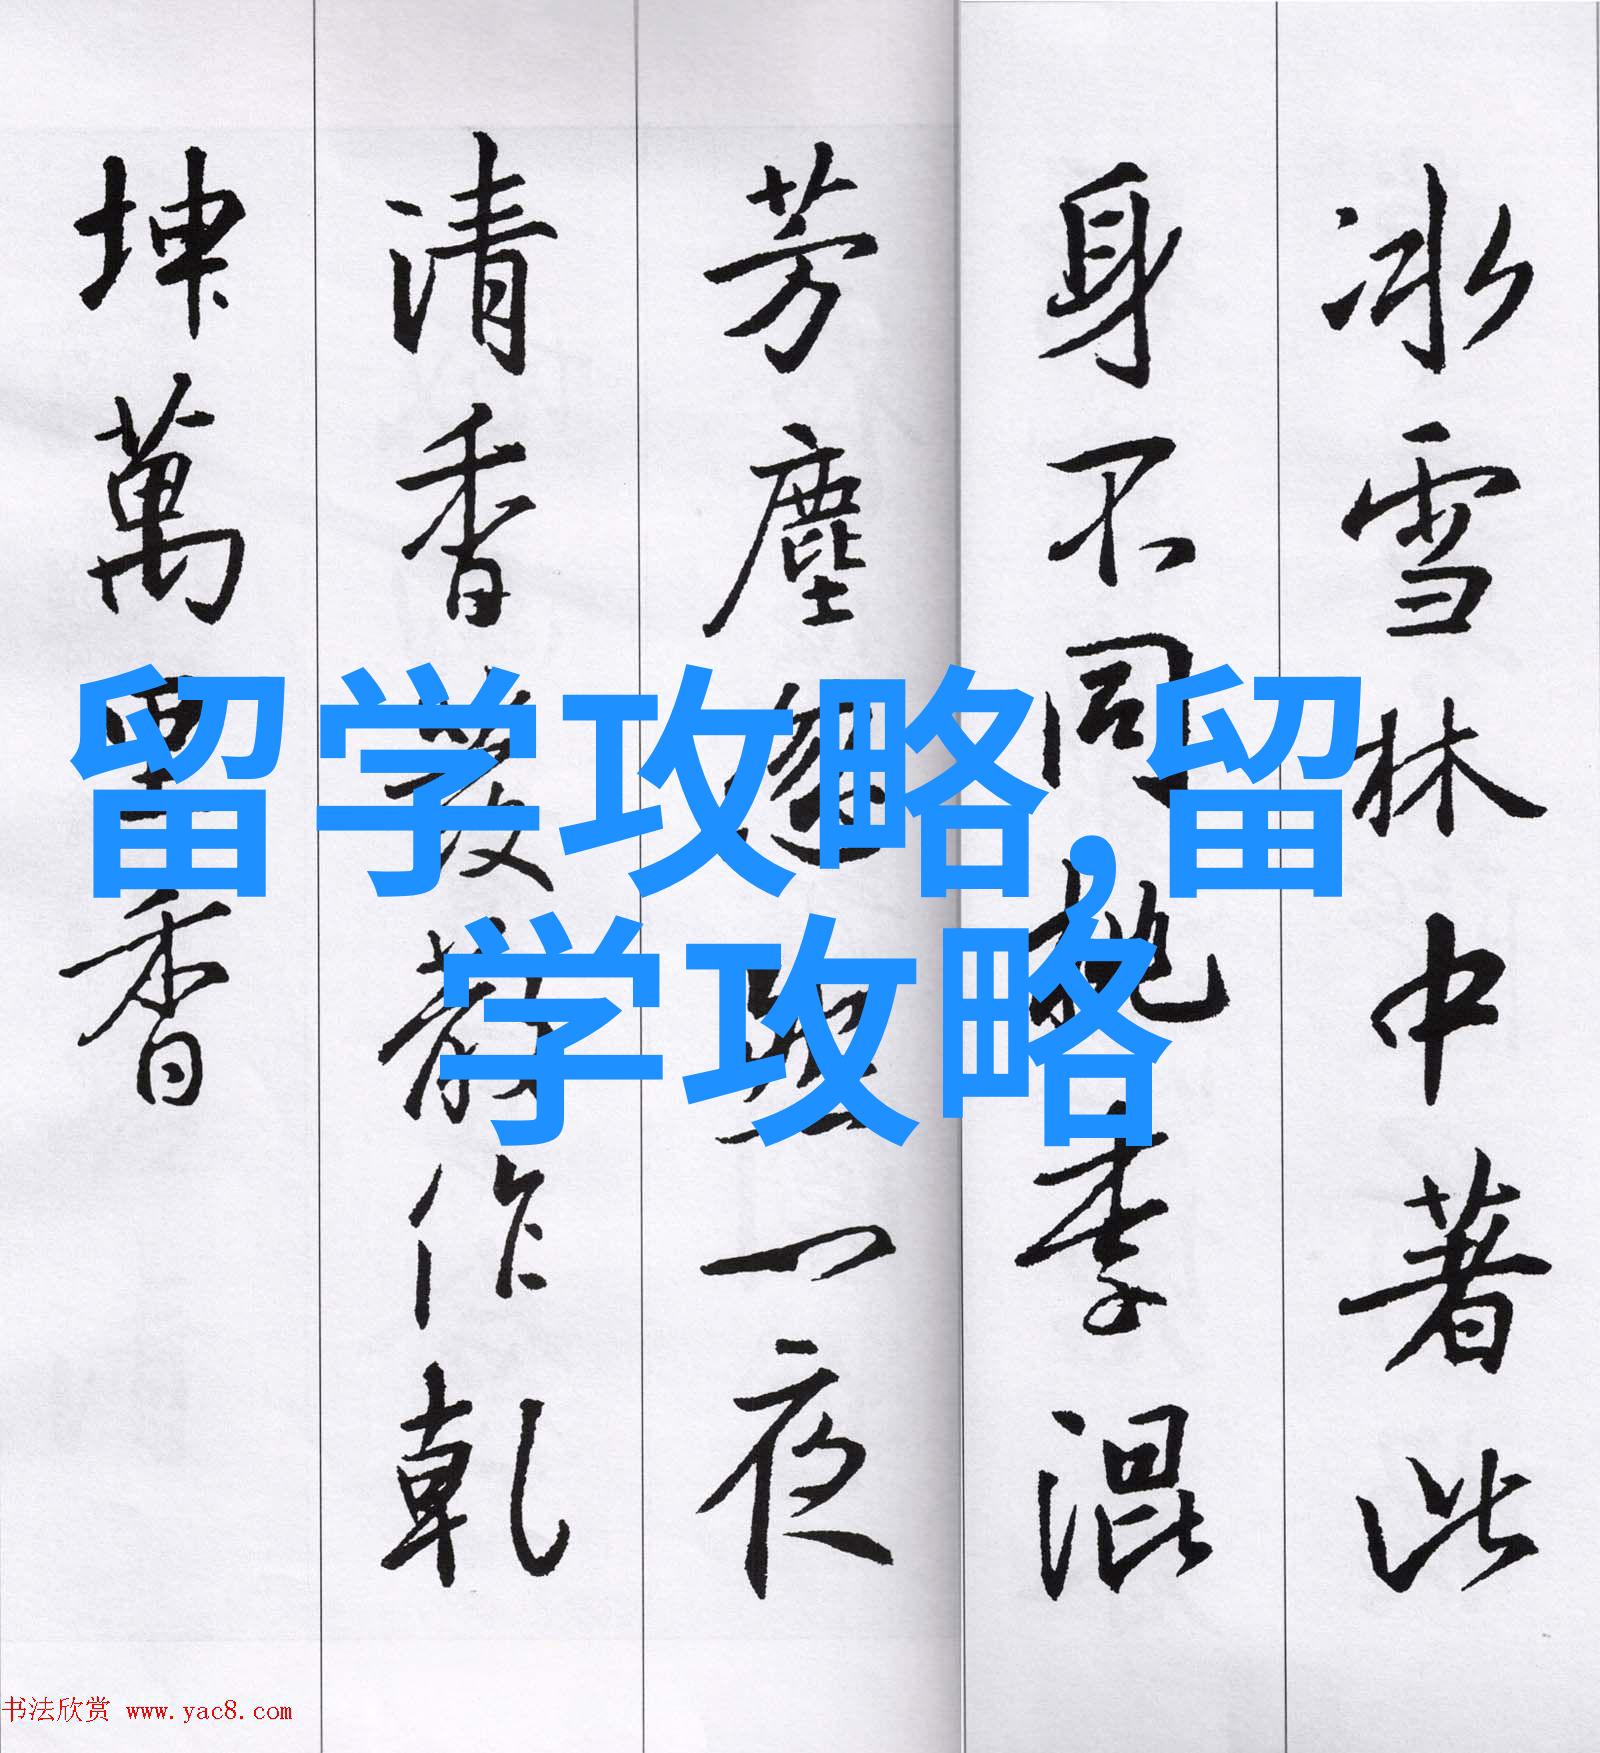 冰雪林中著此
身不同桃李混
芳塵一夜
清香發散作乾
坤萬里香
留学攻略,留
学攻略
书法欣赏 www.yac8.com